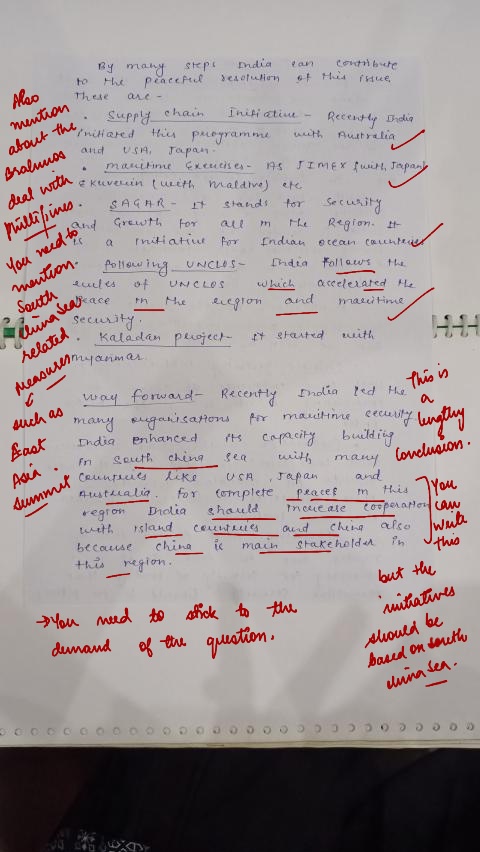 By many steps India can contribute
to the peaceful resolution of this issue
These are -
• Supply chain Initiative - Recently India
initiated this programme with Australia
and USA, Japan.
• maritime Exercises - AS JIMEX (with Japan)
& Kuverin (with Maldive) etc
• SAGAR - It stands for Security
and Growth for all in the Region. It
is a initiative for Indian ocean countries
• following UNCLOS - India follows the
rules of UNCLOS which accelerated the
Peace in the region and maritime
security.
• Kaladan project - it started with
myanmar.
way forward - Recently India led the
many organisations for maritime security.
India enhanced its capacity building
in South china sea with many
countries like USA, Japan and
Australia. for complete peaces in this
region India should increase cooperation
with island countries and china also
because china is main stakeholder in
this region.
Also
mention
about the
Brahmos
deal with
Phillipines.
You need to
mention
South
china sea
related
measures
such as
East
Asia
Summit
This is
a
lengthy
conclusion.
You
can
write
this
but the
initiatives
should be
based on south
china sea.
→ You need to stick to the
demand of the question.